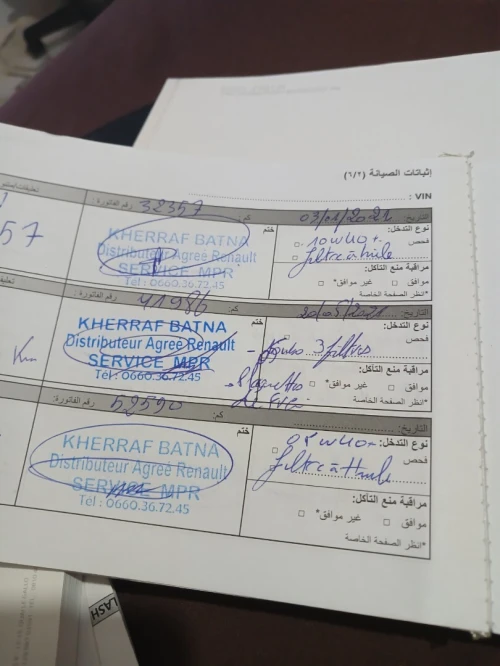 إثباتات الصيانة (٦/٢)
VIN :
التاريخ: 03/01/2021
كم: 32357
رقم الفاتورة:
نوع التدخل:
فحص
10W40 +
filtre à huile
مراقبة منع التآكل:
موافق
غير موافق*
*انظر الصفحة الخاصة
ختم
KHERRAF BATNA
Distributeur Agréé Renault
SERVICE MPR
Tél : 0660.36.72.45
57
التاريخ: 20/05/2021
كم: 41986
رقم الفاتورة:
نوع التدخل:
فحص
3 filtres
مراقبة منع التآكل:
- Plaquettes
موافق
غير موافق*
*انظر الصفحة الخاصة
ختم
KHERRAF BATNA
Distributeur Agréé Renault
SERVICE MPR
Tél : 0660.36.72.45
Km
التاريخ:
كم: 52590
رقم الفاتورة:
نوع التدخل:
فحص
filtre à Huile
مراقبة منع التآكل:
موافق
غير موافق*
*انظر الصفحة الخاصة
ختم
KHERRAF BATNA
Distributeur Agréé Renault
SERVICE MPR
Tél : 0660.36.72.45
LASH